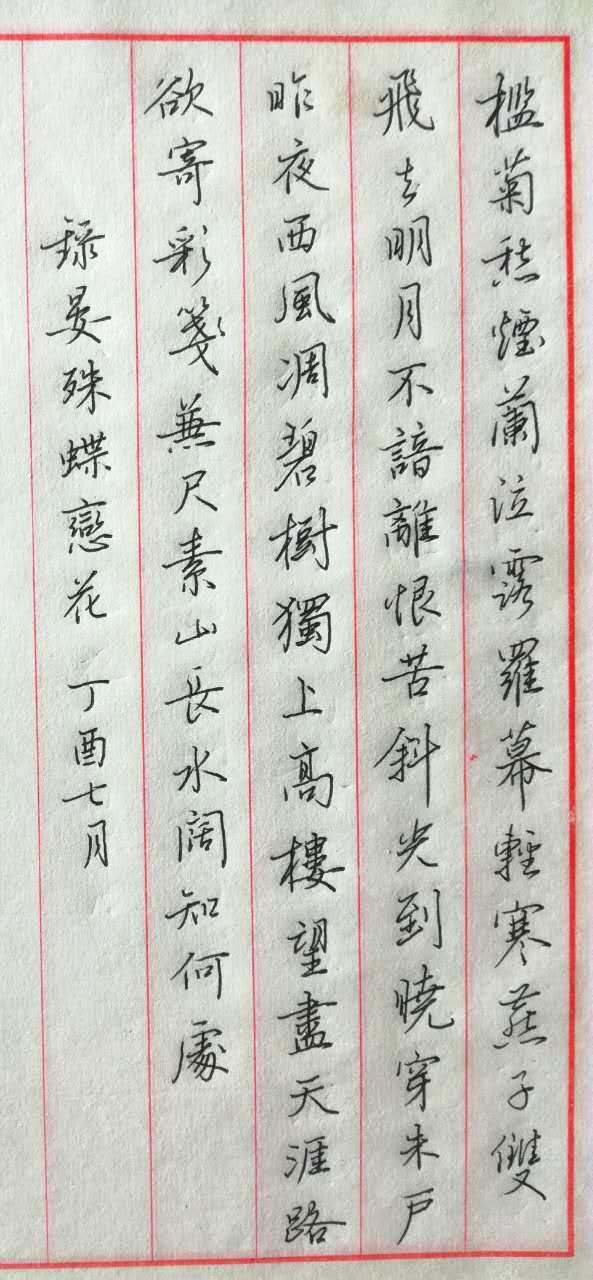 檻菊愁煙蘭泣露羅幕輕寒燕子雙
飛去明月不諳離恨苦斜光到曉穿朱戶
昨夜西風凋碧樹獨上高樓望盡天涯路
欲寄彩箋兼尺素山長水闊知何處
錄晏殊蝶戀花 丁酉七月